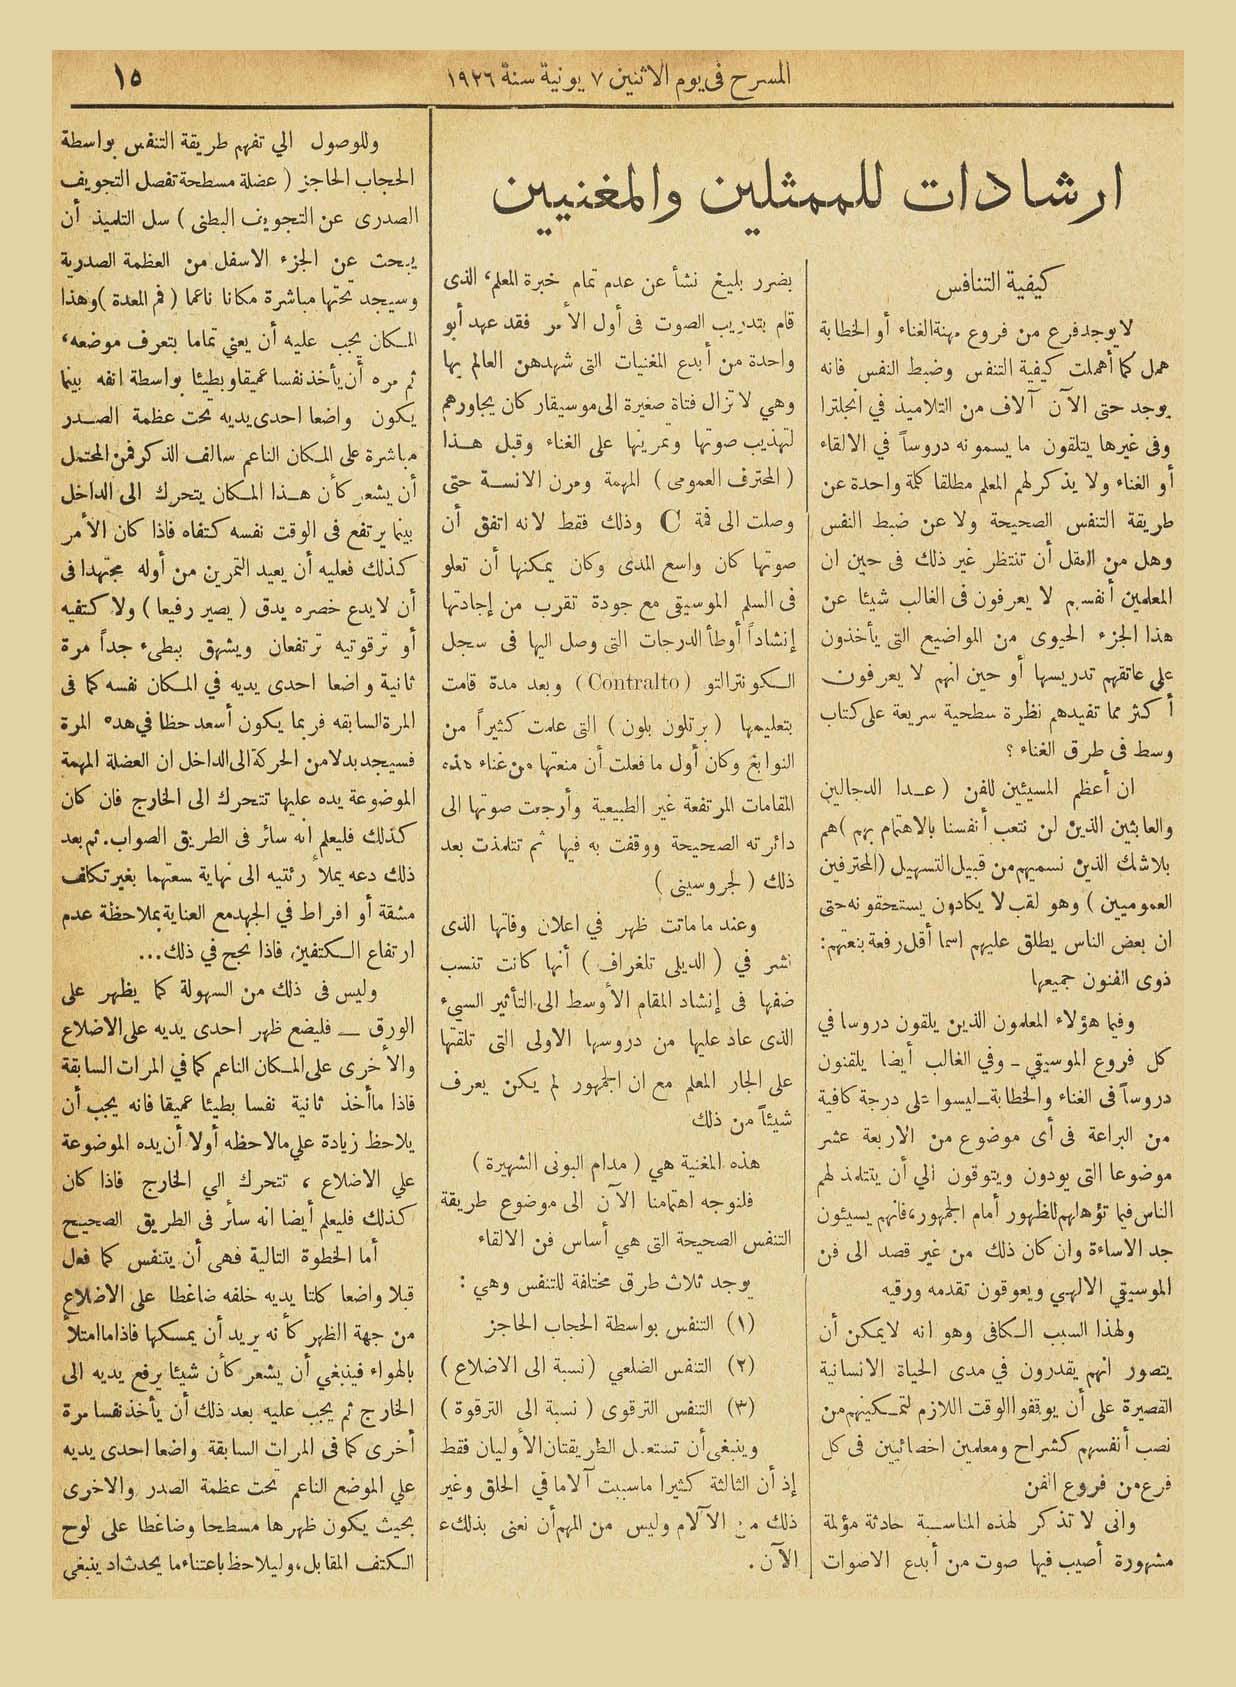 المسرح فى يوم الاثنين ٧ يونية سنة ١٩٢٦
١٥
ارشادات للممثلين والمغنيين
كيفية التنافس
لا يوجد فرع من فروع مهنة الغناء أو الخطابة
همل كما أهملت كيفية التنفس وضبط النفس فانه
يوجد حتى الآن آلاف من التلاميذ في انجلترا
وفى غيرها يتلقون ما يسمونه دروساً في الالقاء
أو الغناء ولا يذكر لهم المعلم مطلقا كلمة واحدة عن
طريقة التنفس الصحيحة ولا عن ضبط النفس
وهل من العقل أن تنتظر غير ذلك فى حين ان
المعلمين أنفسهم لا يعرفون فى الغالب شيئا عن
هذا الجزء الحيوى من المواضيع التى يأخذون
على عاتقهم تدريسها أو حين انهم لا يعرفون
أكثر مما تفيدهم نظرة سطحية سريعة على كتاب
وسط فى طرق الغناء ؟
ان أعظم المسيئين للفن ( عدا الدجالين
والعابثين الذين لن نتعب أنفسنا بالاهتمام بهم ) هم
بلا شك الذين نسميهم من قبيل التسهيل ( المحترفين
العموميين ) وهو لقب لا يكادون يستحقونه حتى
ان بعض الناس يطلق عليهم اسما أقل رفعة بنعتهم:
ذوى الفنون جميعها
وفيما هؤلاء المعلمون الذين يلقون دروسا في
كل فروع الموسيقي ـ وفي الغالب أيضا يلقنون
دروساً فى الغناء والخطابة ـ ليسوا على درجة كافية
من البراعة فى أى موضوع من الاربعة عشر
موضوعا التى يودون ويتوقون الي أن يتتلمذ لهم
الناس فيما تؤهلهم للظهور أمام الجمهور، فانهم يسيئون
جد الاساءة وان كان ذلك من غير قصد الى فن
الموسيقي الالهي ويعوقون تقدمه ورقيه
ولهذا السبب الكافى وهو انه لايمكن أن
يتصور انهم يقدرون في مدى الحياة الانسانية
القصيرة على أن يوقفوا الوقت اللازم لتمكينهم من
نصب أنفسهم كشراح ومعلمين اخصائيين فى كل
فرع من فروع الفن
وانى لا تذكر لهذه المناسبة حادثة مؤلمة
مشهورة أصيب فيها صوت من أبدع الاصوات
بضرر بليغ نشأ عن عدم تمام خبرة المعلم، الذى
قام بتدريب الصوت فى أول الأمر فقد عهد أبو
واحدة من أبدع المغنيات التى شهدهن العالم بها
وهي لا تزال فتاة صغيرة الى موسيقار كان يجاورهم
لتهذيب صوتها وتمرينها على الغناء وقبل هذا
( المحترف العمومى ) المهمة ومرن الانسة حتى
وصلت الى قمة C وذلك فقط لانه اتفق أن
صوتها كان واسع المدى وكان يمكنها أن تعلو
فى السلم الموسيقى مع جودة تقرب من إجادتها
إنشاداً أوطأ الدرجات التى وصل اليها فى سجل
الكونترالتو ( Contralto ) وبعد مدة قامت
بتعليمها ( برتلون بلون ) التى علمت كثيراً من
النوابغ وكان أول ما فعلت أن منعتها من غناء هذه
المقامات المرتفعة غير الطبيعية وأرجعت صوتها الى
دائرته الصحيحة ووقفت به فيها ثم تتلمذت بعد
ذلك ( لجروسينى )
وعند ما ماتت ظهر في اعلان وفاتها الذى
نشر في ( الديلى تلغراف ) أنها كانت تنسب
ضفها فى إنشاد المقام الأوسط الى التأثير السيء
الذى عاد عليها من دروسها الاولى التى تلقتها
على الجار المعلم مع ان الجمهور لم يكن يعرف
شيئاً من ذلك
هذه المغنية هي ( مدام البونى الشهيرة )
فلنوجه اهتمامنا الآن الى موضوع طريقة
التنفس الصحيحة التى هي أساس فن الالقاء
يوجد ثلاث طرق مختلفة للتنفس وهي :
(١) التنفس بواسطة الحجاب الحاجز
(٢) التنفس الضلعي ( نسبة الى الاضلاع )
(٣) التنفس الترقوى ( نسبة الى الترقوة )
وينبغى أن تستعمل الطريقتان الأوليان فقط
إذ أن الثالثة كثيرا ما سببت آلاما في الحلق وغير
ذلك من الآلام وليس من المهم أن نعنى بذلك
الآن .
وللوصول الي تفهم طريقة التنفس بواسطة
الحجاب الحاجز ( عضلة مسطحة تفصل التجويف
الصدرى عن التجويف البطنى ) سل التلميذ أن
يبحث عن الجزء الاسفل من العظمة الصدرية
وسيجد تحتها مباشرة مكانا ناعما ( فم المعدة ) وهذا
المكان يجب عليه أن يعني تماما بتعرف موضعه،
ثم مره أن يأخذ نفسا عميقا وبطيئا بواسطة انفه بينما
يكون واضعا احدى يديه تحت عظمة الصدر
مباشرة على المكان الناعم سالف الذكر فمن المحتمل
أن يشعر كأن هذا المكان يتحرك الى الداخل
بينما يرتفع فى الوقت نفسه كتفاه فاذا كان الأمر
كذلك فعليه أن يعيد التمرين من أوله مجتهدا فى
أن لا يدع خصره يدق ( يصير رفيعا ) ولا كتفيه
أو ترقوتيه ترتفعان ويشهق ببطىء جداً مرة
ثانية واضعا احدى يديه في المكان نفسه كما فى
المرة السابقه فربما يكون أسعد حظا في هذه المرة
فسيجد بدلا من الحركة الى الداخل ان العضلة المهمة
الموضوعة يده عليها تتحرك الى الخارج فان كان
كذلك فليعلم أنه سائر فى الطريق الصواب. ثم بعد
ذلك دعه يملأ رئتيه الى نهاية سعتهما بغير تكلف
مشقة أو افراط في الجهد مع العناية بملاحظة عدم
ارتفاع الكتفين، فاذا نجح في ذلك...
وليس فى ذلك من السهولة كما يظهر على
الورق ـــ فليضع ظهر احدى يديه على الاضلاع
والأخرى على المكان الناعم كما في المرات السابقة
فاذا ما أخذ ثانية نفسا بطيئا عميقا فانه يجب أن
يلاحظ زيادة علي مالاحظه أولا أن يده الموضوعة
علي الاضلاع ، تتحرك الي الخارج فاذا كان
كذلك فليعلم أيضا انه سائر فى الطريق الصحيح
أما الخطوة التالية فهى أن يتنفس كما فعل
قبلا واضعا كلتا يديه خلفه ضاغطا على الاضلاع
من جهة الظهر كأنه يريد أن يمسكها فاذا ما امتلأ
بالهواء فينبغي أن يشعر كأن شيئا يرفع يديه الى
الخارج ثم يجب عليه بعد ذلك أن يأخذ نفسا مرة
أخرى كما فى المرات السابقة واضعا احدى يديه
علي الموضع الناعم تحت عظمة الصدر والاخرى
بحيث يكون ظهرها مسطحا وضاغطا على لوح
الكتف المقابل، وليلاحظ باعتناء ما يحدث اد ينبغى